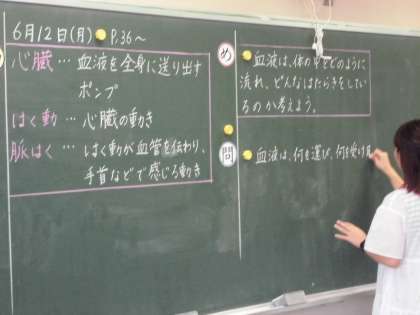 6月12日(月) P.36〜
心臓…血液を全身に送り出す
ポンプ
はく動…心臓の動き
脈はく…はく動が血管を伝わり、
手首などで感じる動き
め
血液は、体の中をどのように
流れ、どんなはたらきをしてい
るのか考えよう。
問
血液は、何を運び、何を受け